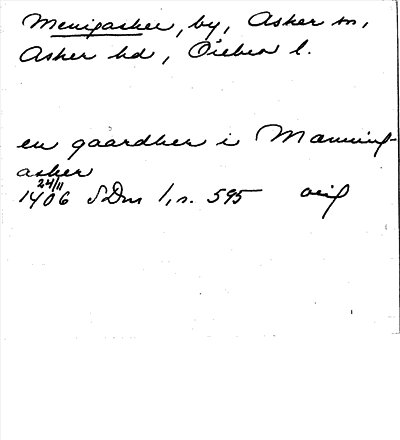 Menigasker, by, Asker sn,
Asker hd, Örebro l.
en gaardher i Manning-
asker
24/11
1406 SDns 1, s. 595 orig